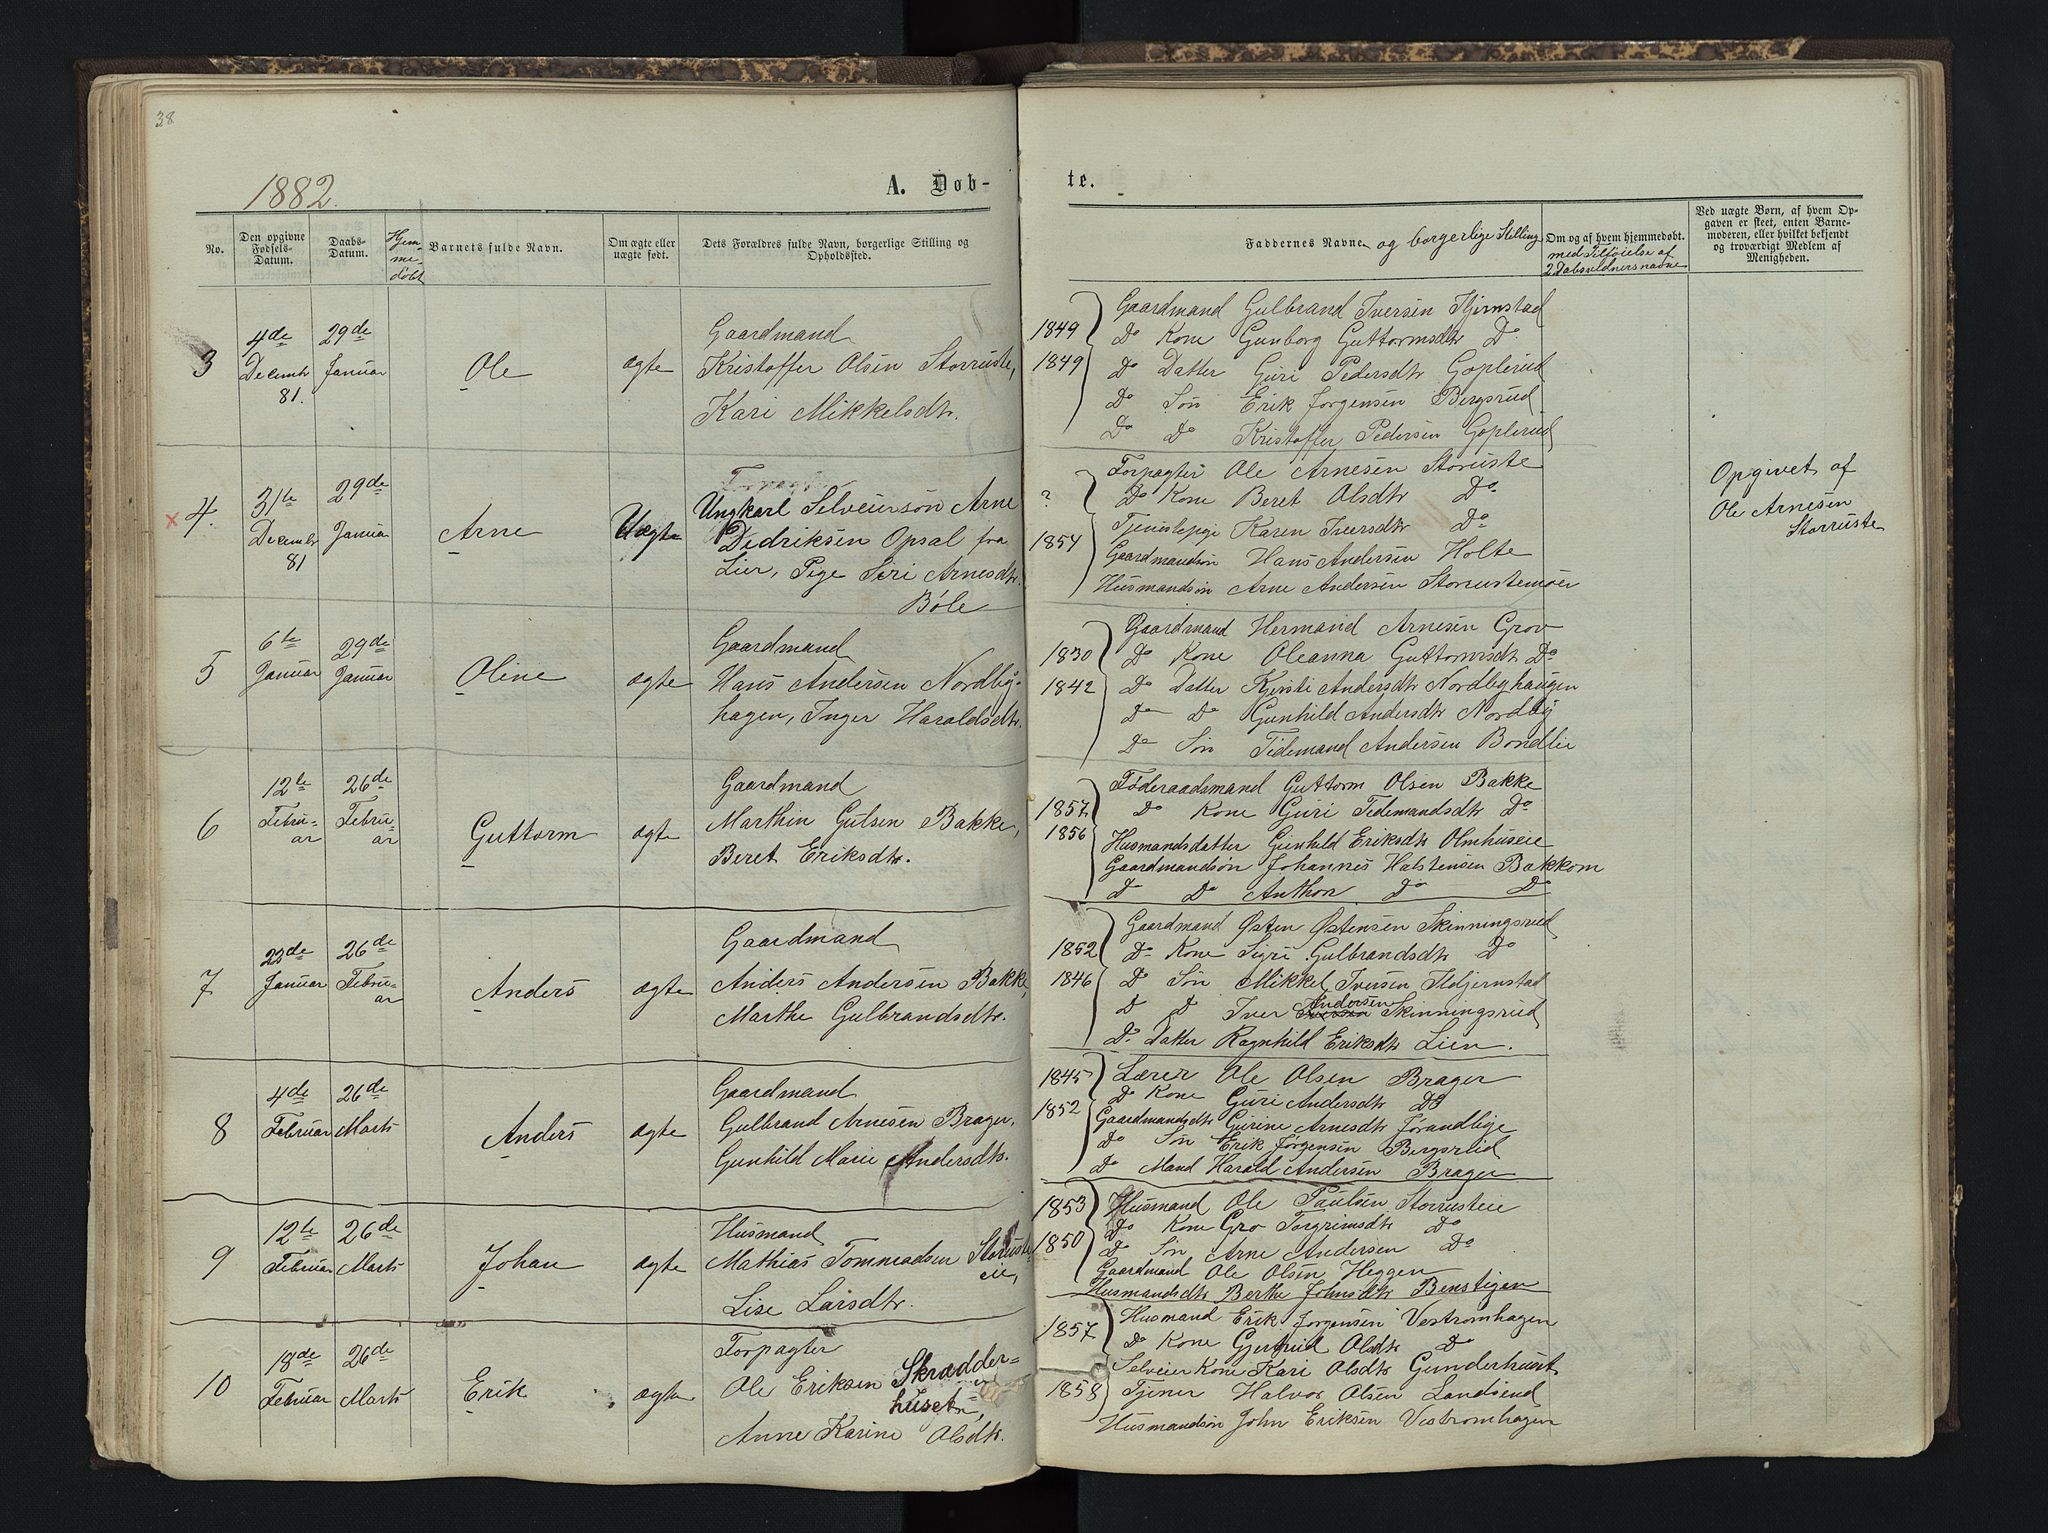 38
1882.
A. Døb-
No.
Den opgivne Fødsels-Datum.
Daabs-Datum.
Hjem-me-døbt
Barnets fulde Navn.
Om ægte eller uægte født.
Dets Forældres fulde Navn, borgerlige Stilling og Opholdssted.
3
4de Decembr 81.
29de Januar
Ole
ægte
Gaardmand
Kristoffer Olsen Storruste,
Kari Mikkelsdtr.
4.
31te Decembr 81
29de Januar
Arne
Uægte
Ungkarl Selveiersøn Arne
Didriksen Opsal fra
Lier, Pige Siri Arnesdtr.
Bøle
5
6te Januar
29de Januar
Oline
ægte
Gaardmand
Hans Andersen Nordby-
hagen, Inger Haraldsdtr.
6
12te Febru-ar
26de Febru-ar
Guttorm
ægte
Gaardmand
Marthin Gulsen Bakke,
Beret Eriksdtr.
7
23de Januar
26de Febru-ar
Anders
ægte
Gaardmand
Anders Andersen Bakke,
Marthe Gulbrandsdtr.
8
4de Februar
26de Marts
Anders
ægte
Gaardmand
Gulbrand Arnesen Brager,
Gunhild Marie Andersdtr.
9
12te Februar
26de Marts
Johan
ægte
Husmand
Mathias Tommasdsen Storruste-
eie,
Lise Larsdtr.
10
18de Februar
26de Marts
Erik
ægte
Forpagter
Ole Eriksen Skrædder-
huset,
Anne Karine Olsdtr.
te.
Faddernes Navne og borgerlige Stilling
Om og af hvem hjemmedøbt.
med Tilføielse af
2 Daabsvidners navne
Ved uægte Børn, af hvem Op-
gaven er skeet, enten Barne-
moderen, eller hvilket bekjendt
og troværdigt Medlem af
Menigheden.
1849
1849
Gaardmand Gulbrand Iversen Hjernstad
Do Kone Gunborg Guttormsdtr Do
Do Datter Guri Pedersdtr Goplerud
Do Søn Erik Jørgensen Bergsrud
Do Do Kristoffer Pedersen Goplerud
?
1854
Forpagter Ole Arnesen Storuste
Do Kone Beret Olsdtr Do
Tjenistepige Karen Iversdtr Do
Gaardmandsøn Hans Andersen Holte
Husmandsøn Arne Andersen Storrustemoen
Opgivet af
Ole Arnesen
Storruste
1830
1842
Gaardmand Hermand Arnesen Grov
Do Kone Oleanna Guttormsdtr Do
Do Datter Kjersti Andersdtr Nordbyhaugen
Do Do Gunhild Andersdtr Nordby
Do Søn Tidemand Andersen Bondlie
1857
1856
Føderaadsmand Guttorm Olsen Bakke
Do Kone Guri Tidemandsdtr Do
Husmandsdatter Gunhild Eriksdtr Olmhuseie
Gaardmandsøn Johannes Halstensen Bakkom
D Do Anthon Do Do
1852
1846
Gaardmand Østen Østensen Skinningsrud
Do Kone Sigri Gulbrandsdtr Do
D Søn Mikkel Iversen Hdjernstad
D D Iver Andersen Skinningsrud
Do Datter Ragnhild Eriksdtr Lien.
1845
1852
Lærer Ole Olsen Brager
Do Kone Guri Andersdtr Do
Gaardmandsdtr Gurine Arnesdtr Jørandlige
Do Søn Erik Jørgensen Bergsrud
Do Mand Harald Andersen Brager
1853
1850
Husmand Ole Paulsen Storrusteie
Do Kone Gro Torgrimsdtr Do
Do Søn Arne Andersen Do
Gaardmand Ole Olsen Heggen
Husmandsdtr Berthe Johnsdtr Benstigen
1857
1858
Husmand Erik Jørgensen Vestromhagen
Do Kone Gjertrud Olsdtr D
Selveier Kone Kari Olsdtr Gunderhuset
Tjener Halvor Olsen Landsend
Husmandsøn John Eriksen Vestromhagen